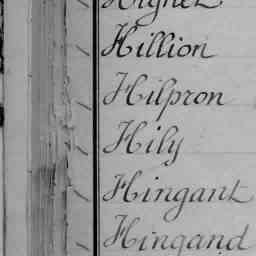 Hillion
Hilpron
Hily
Hingant
Hingand